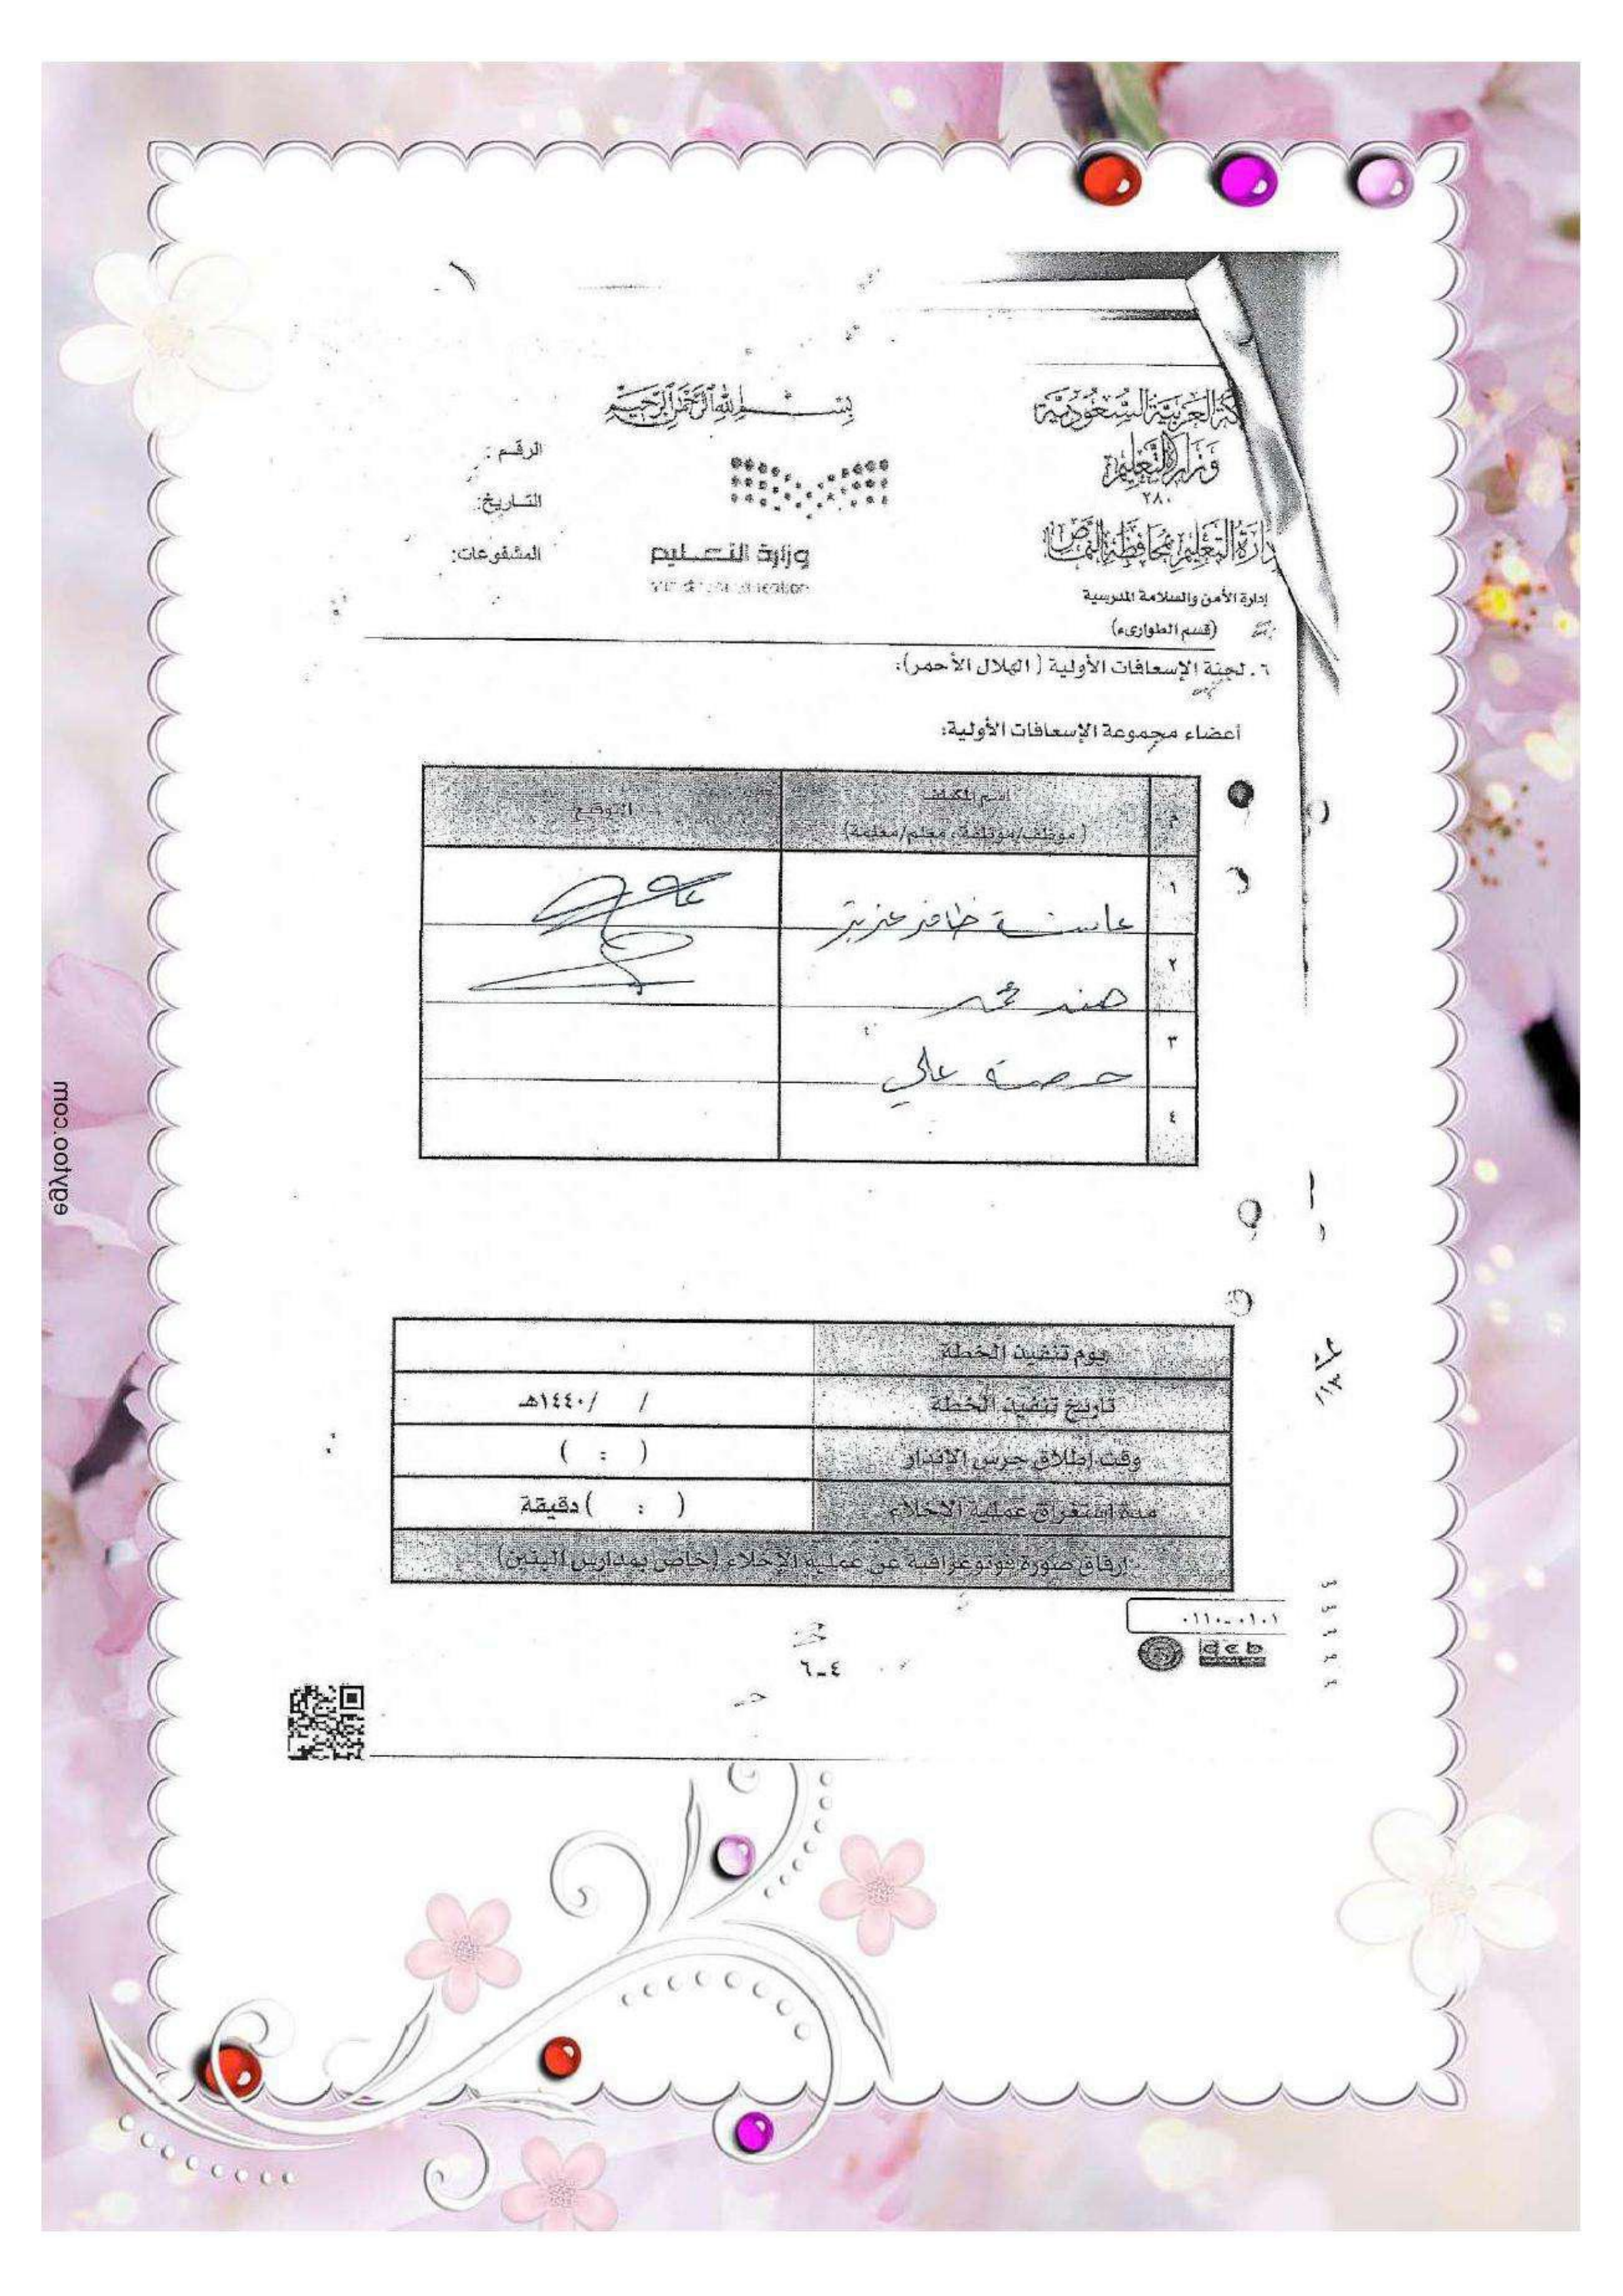 بسم الله الرحمن الرحيم
كة العربية السعودية
وزارة التعليم
٢٨٠
دارة التعليم بمحافظة النماص
إدارة الأمن والسلامة المدرسية
(قسم الطوارىء)
وزارة التعليم
الرقم :
التاريخ:
المشفوعات:
٦. لجنة الإسعافات الأولية ( الهلال الأحمر):
أعضاء مجموعة الإسعافات الأولية:
م اسم المكلف التوقيع
( موظف/موظفة ، معلم/معلمة)
١ ظافر عزيز
٢ هند محمد
٣ حصة علي
٤
يوم تنفيذ الخطة
تاريخ تنفيذ الخطة / /١٤٤٠هـ
وقت إطلاق جرس الانذار ( : )
مدة استغراق عملية الاخلاء ( : ) دقيقة
إرفاق صورة فوتوغرافية عن عملية الإخلاء (خاص بمدارس البنين)
٠١١٠-٠١٠١
٤-٦
egytoo.com